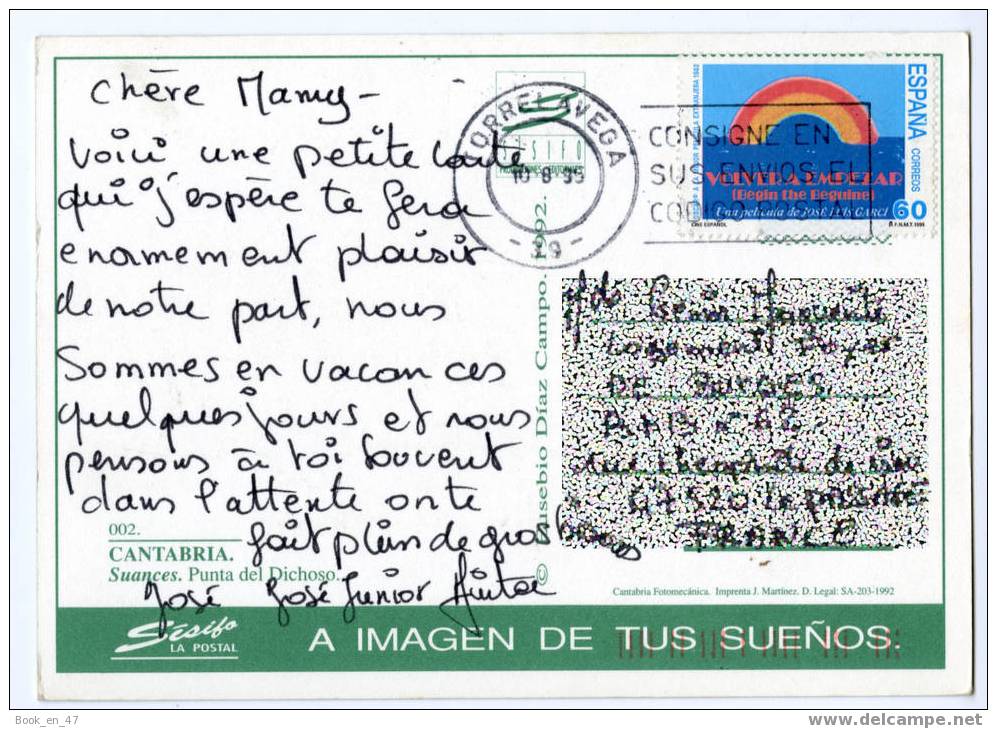 chère Mamy -
Voici une petite carte
qui j'espère te fera
enormement plaisir
de notre part, nous
Sommes en vacances
quelques jours et nous
pensons à toi souvent
dans l'attente on te
fait plein de gros
José José Junior
002.
CANTABRIA.
Suances. Punta del Dichoso.
Sísifo
LA POSTAL
A IMAGEN DE TUS SUEÑOS.
© Eusebio Díaz Campo. 1992.
TORRELAVEGA
SISIFO
39
CONSIGNE EN
SUS ENVIOS EL
CODIGO POSTAL
ESPAÑA CORREOS
VOLVER A EMPEZAR
(Begin the Beguine)
Una película de JOSÉ LUIS GARCI
60
CINE ESPAÑOL
F.N.M.T. 1995
FRANCE
Cantabria Fotomecánica. Imprenta J. Martínez. D. Legal: SA-203-1992
Book_en_47
www.delcampe.net